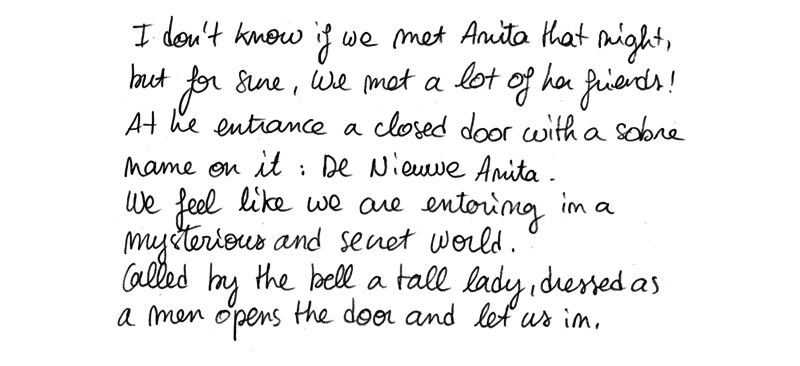 I don't know if we met Anita that night,
but for sure, we met a lot of her friends!
At he entrance a closed door with a sobre
name on it : De Nieuwe Anita.
We feel like we are entering in a
mysterious and secret world.
Called by the bell a tall lady, dressed as
a men opens the door and let us in.